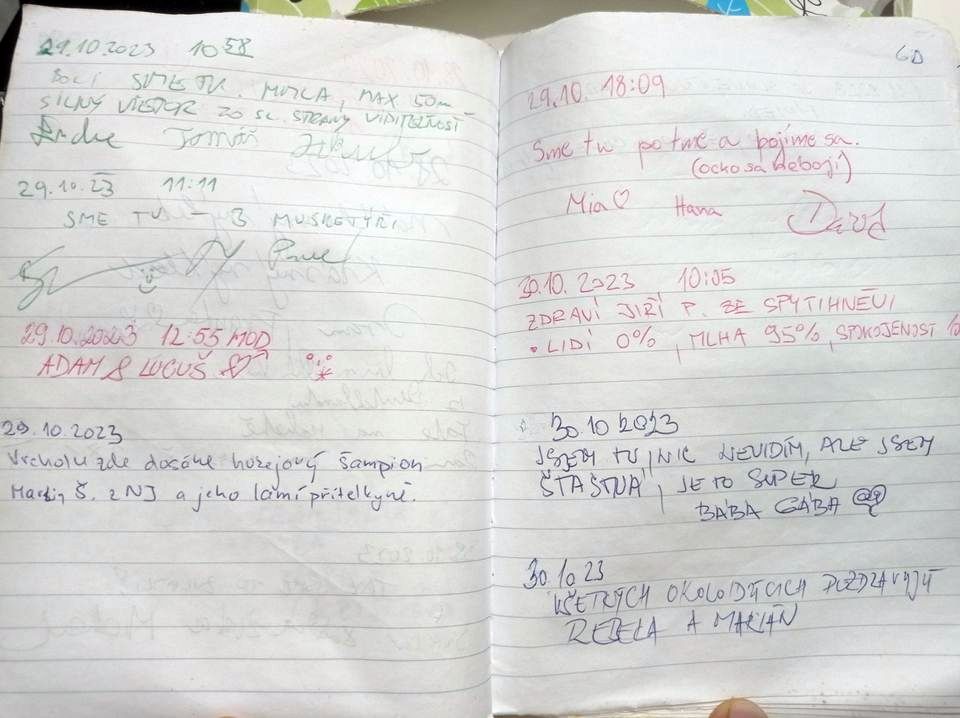 29.10.2023 10 58
BOLI SME TU. MHLA, MAX 50m
SILNÝ VIETOR ZO SE. STRANY VIDITEĽNOSŤ
Tomáš
29.10.23 11:11
SME TU - 3 MUSKETÝRI
29.10.2023 12:55 HOD
ADAM & LUCUŠ
29.10.2023
Vrcholu zde dosáhe hokejový šampion
Martin Š. z NJ a jeho přítelkyně.
29.10. 18:09
Sme tu po tme a bojíme sa.
(ocko sa nebojí)
Mia ♡ Hana David
30.10. 2023, 10:05
ZDRAVÍ JIŘÍ P. ZE SPYTIHNĚVI
• LIDÍ 0%, MLHA 95%, SPOKOJENOST
30 10 2023
JSEM TU, NIC NEVIDÍM, ALE JSEM
ŠTASTNÁ, JE TO SUPER
BÁBA GÁBA
30.10 23
VŠETKÝCH OKOLOIDÚCICH POZDRAVUJÚ
A MARIÁN